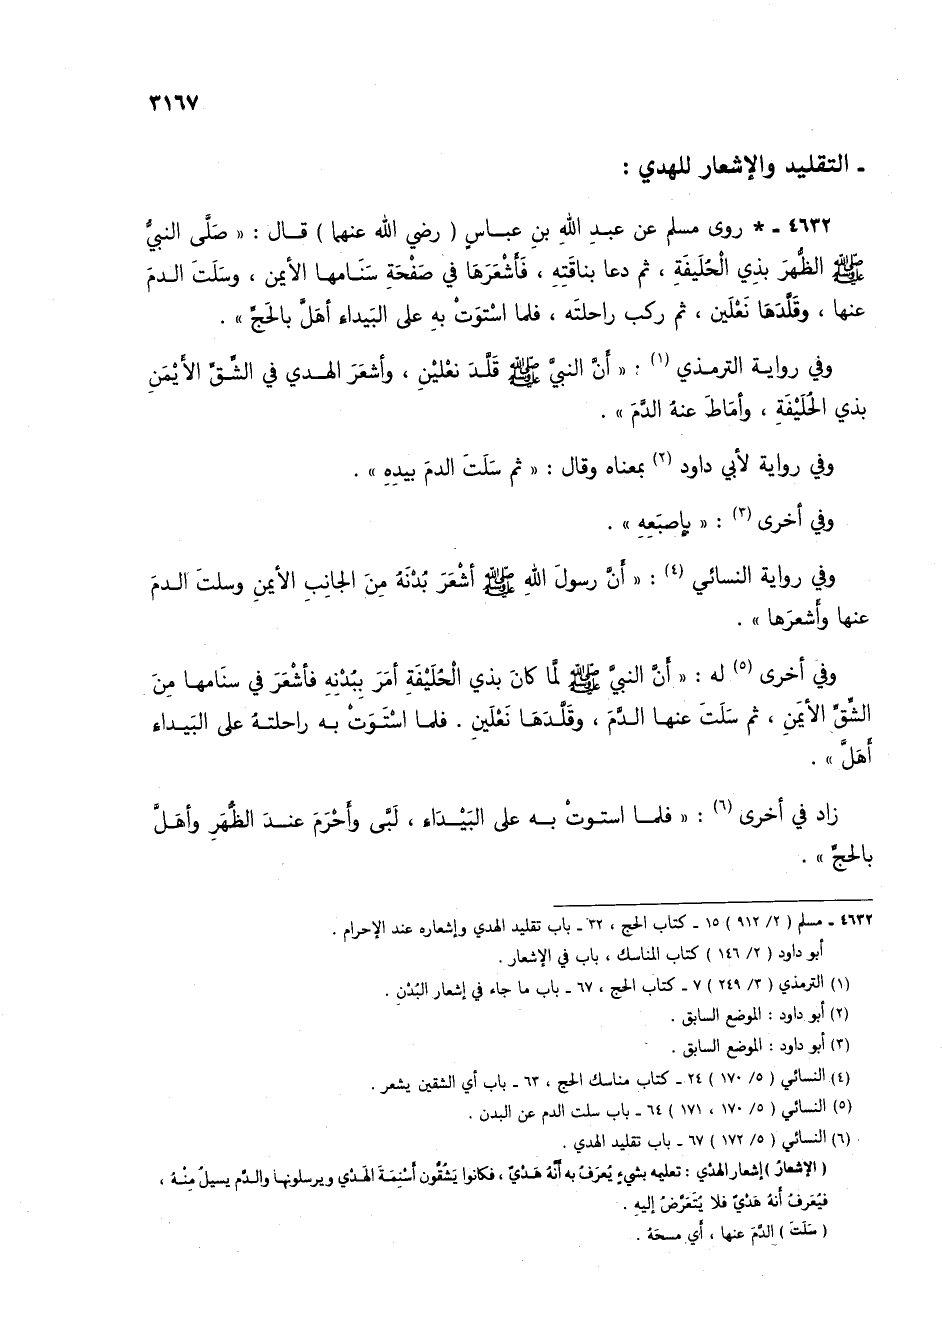 ٣١٦٧
ـ التقليد والإشعار للهدي :
٤٦٣٢ ـ * روى مسلم عن عبدِ اللهِ بنِ عباسٍ ( رضي الله عنهما ) قال : « صَلَّى النبيُّ
ﷺ الظُّهرَ بذِي الْحُلَيفَةِ ، ثم دعا بناقتِهِ ، فَأَشْعَرَهَا في صَفْحَةِ سَنَامها الأيمنِ ، وسَلَتَ الدمَ
عنها ، وقَلَّدَهَا نَعْلَين ، ثم ركب راحلتَه ، فلما اسْتوَتْ بهِ على البَيداء أهلَّ بالحَجِّ » .
وفي روايةِ الترمذي (١) : « أنَّ النبيَّ ﷺ قَلَّدَ نعْليْنِ ، وأشعَرَ الهدي في الشِّقِّ الأيْمَنِ
بذي الحُلَيْفَةِ ، وأمَاطَ عنهُ الدَّمَ » .
وفي رواية لأبي داود (٢) بمعناه وقال : « ثم سَلَتَ الدمَ بيدِهِ » .
وفي أخرى (٣) : « بإصبَعِهِ » .
وفي روايةِ النسائي (٤) : « أنَّ رسولَ اللهِ ﷺ أشْعَرَ بُدْنَهُ مِنَ الجانِبِ الأيمنِ وسلتَ الدمَ
عنها وأَشعرَها » .
وفي أخرى (٥) له : « أنَّ النبيَّ ﷺ لمَّا كانَ بذي الْحُلَيْفَةِ أمَرَ بِبُدْنِهِ فأشْعَرَ في سنَامها مِنَ
الشِّقِّ الأيمَنِ ، ثم سَلَتَ عنها الدَّمَ ، وقَلَّدَهَا نَعْلَينِ . فلما اسْتَوَتْ به راحلتهُ على البَيداء
أهَلَّ » .
زاد في أخرى (٦) : « فلما استوتْ به على البَيْدَاء ، لَبَّى وأحْرَمَ عندَ الظُّهَرِ وأهَلَّ
بالحجِّ » .
٤٦٣٢ ـ مسلم ( ٢/ ٩١٢ ) ١٥ ـ كتاب الحج ، ٣٢ ـ باب تقليد الهدي وإشعاره عند الإحرام .
أبو داود ( ٢/ ١٤٦ ) كتاب المناسك ، باب في الإشعار .
(١) الترمذي ( ٣/ ٢٤٩ ) ٧ ـ كتاب الحج ، ٦٧ ـ باب ما جاء في إشعار البُدْنِ .
(٢) أبو داود : الموضع السابق .
(٣) أبو داود : الموضع السابق .
(٤) النسائي ( ٥/ ١٧٠ ) ٢٤ ـ كتاب مناسك الحج ، ٦٣ ـ باب أي الشقين يشعر .
(٥) النسائي ( ٥/ ١٧٠ ، ١٧١ ) ٦٤ ـ باب سلت الدم عن البدن .
(٦) النسائي ( ٥/ ١٧٢ ) ٦٧ ـ باب تقليد الهدي .
( الإشعارُ ) إشعار الهدْي : تعليمه بشيءٍ يُعرَفُ به أنَّهُ هَدْيٌ ، فكانوا يَشُقُّون أسْنِمَةَ الهَدْيِ ويرسلونها والدَّم يسيلُ مِنْهُ ،
فيُعرَفُ أنهُ هَدْيٌ فلا يُتَعَرَّضُ إليهِ .
( سَلَتَ ) الدَّمَ عنها ، أي مسحَهُ .